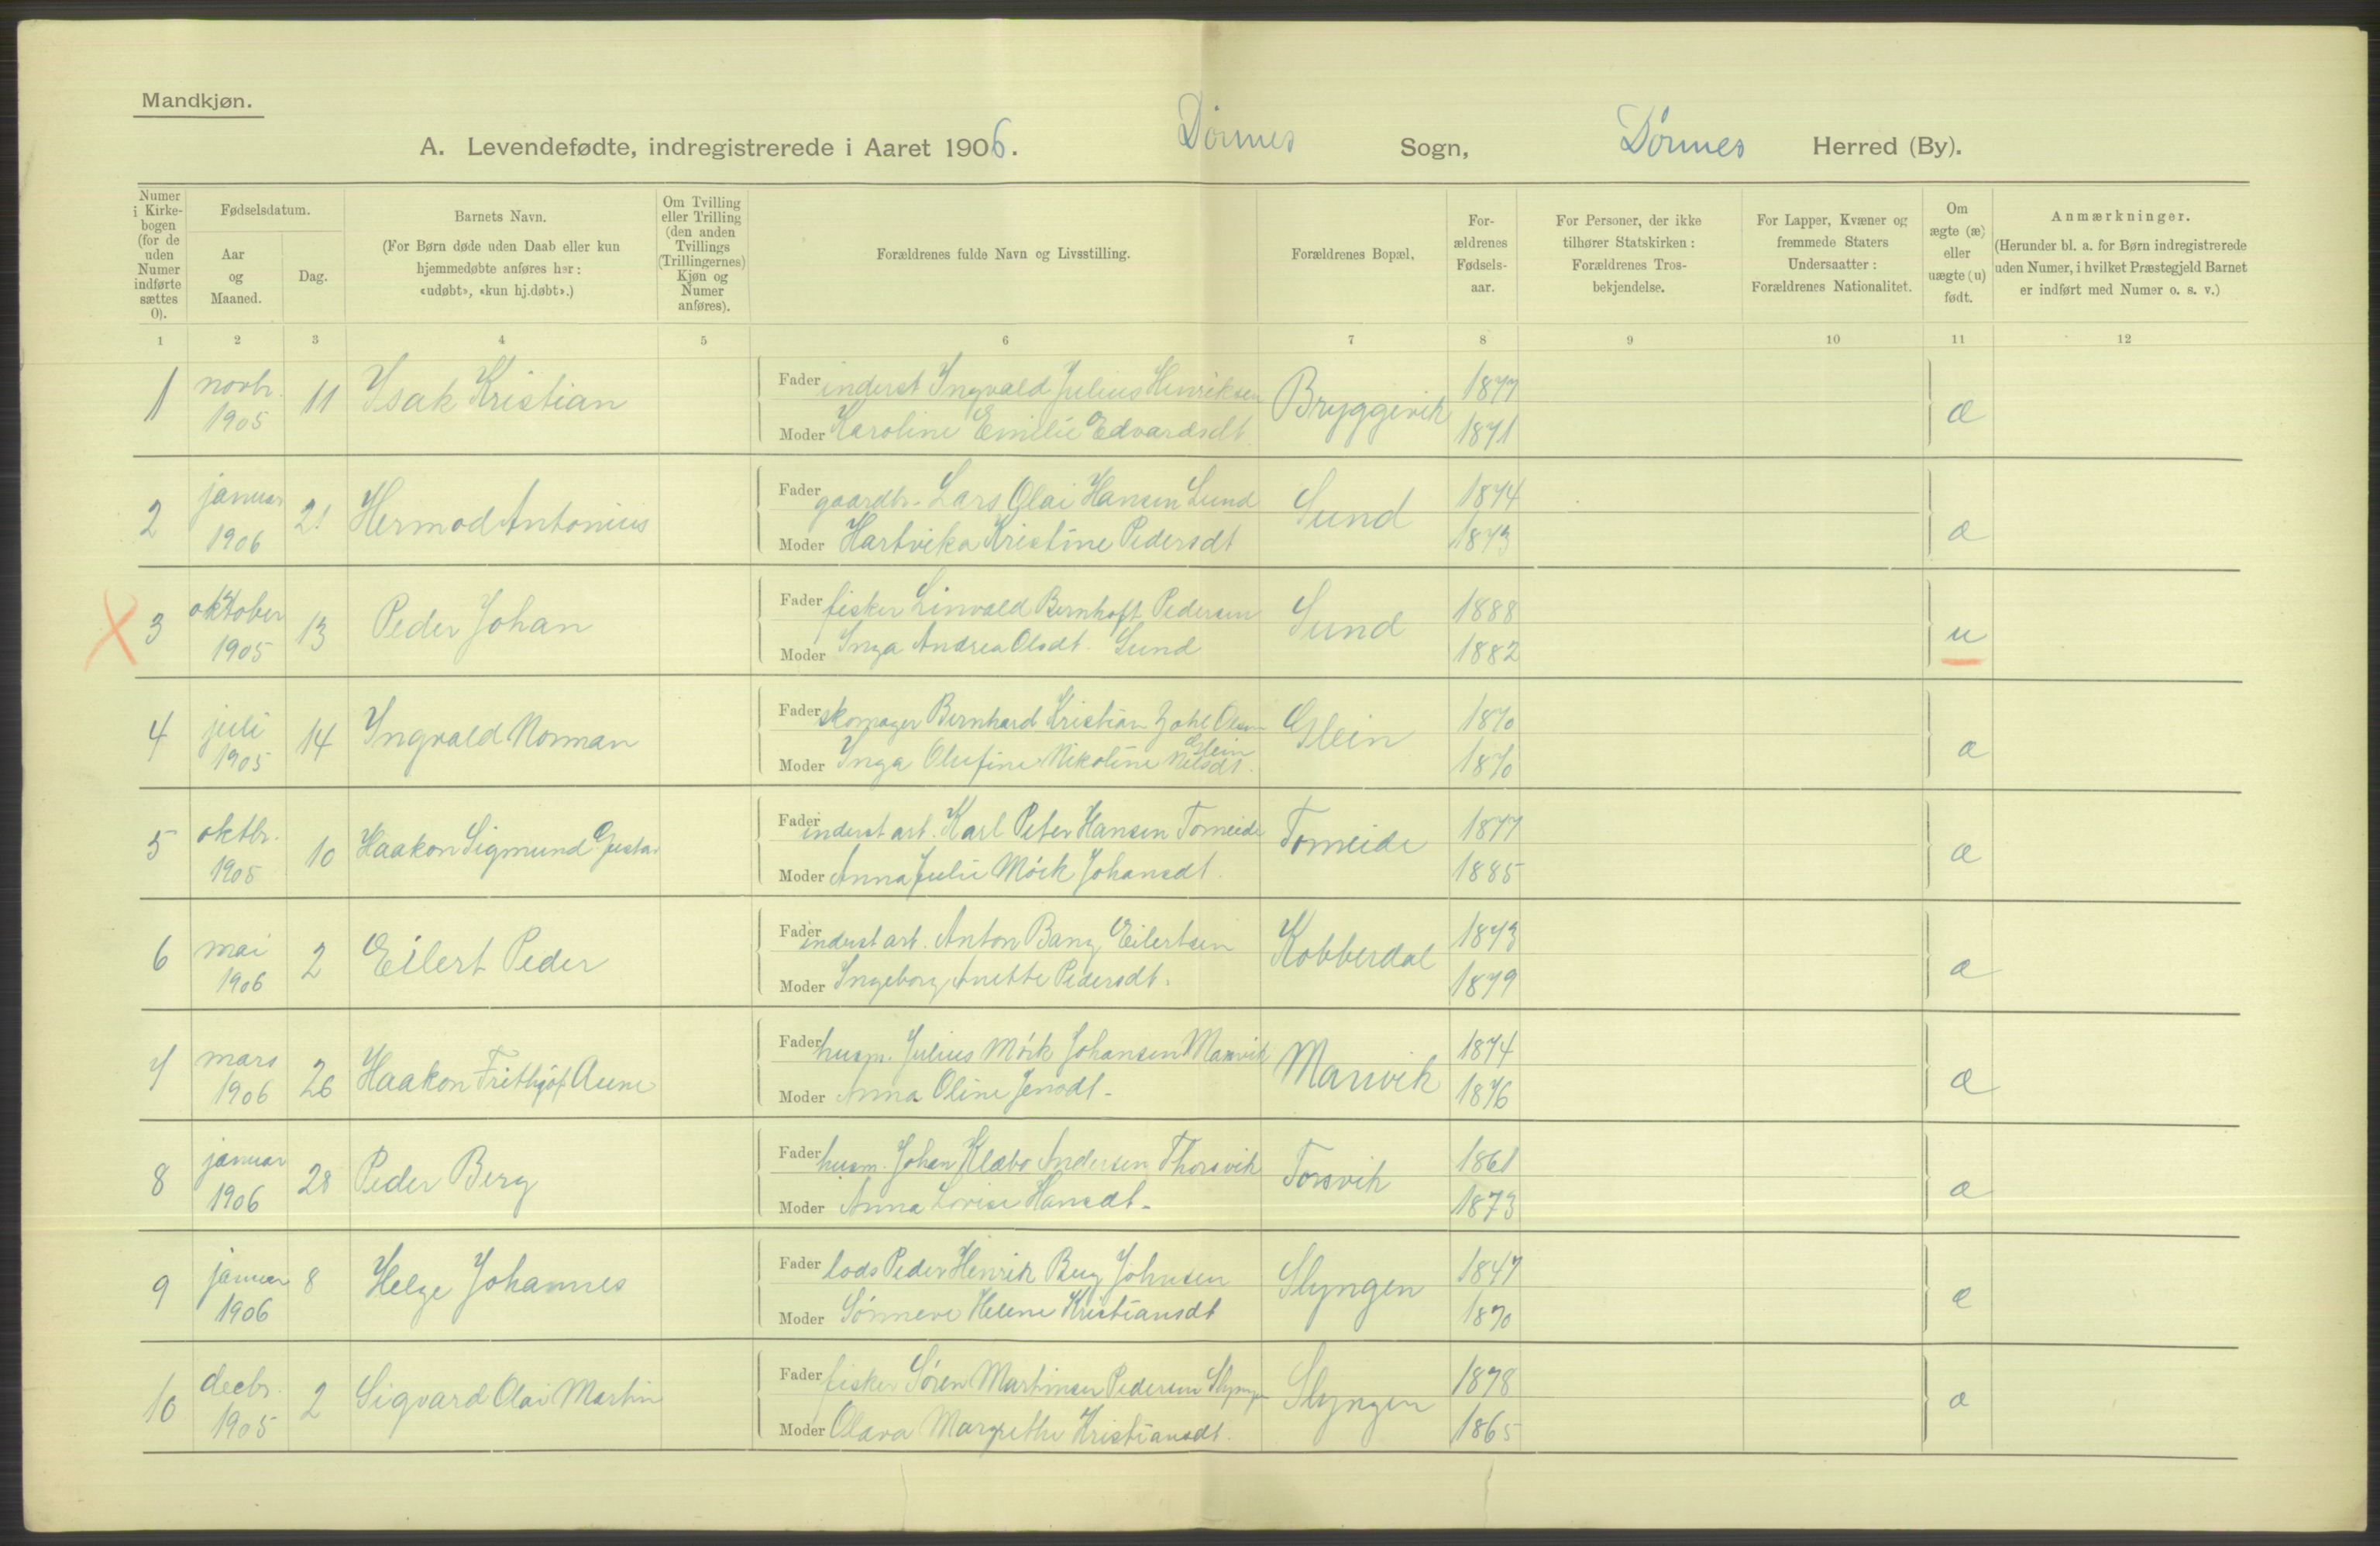 Mandkjøn.
A. Levendefødte, indregistrerede i Aaret 1906. Dönnes Sogn, Dönnes Herred (By).
Numer i Kirkebogen (for de uden Numer indførte sættes 0).
Fødselsdatum.
Aar og Maaned.
Dag.
Barnets Navn.
(For Børn døde uden Daab eller kun hjemmedøbte anføres her: «udøbt», «kun hj.døbt».)
Om Tvilling eller Trilling (den anden Tvillings (Trillingernes) Kjøn og Numer anføres).
Forældrenes fulde Navn og Livsstilling.
Forældrenes Bopæl.
Forældrenes Fødselsaar.
For Personer, der ikke tilhører Statskirken: Forældrenes Trosbekjendelse.
For Lapper, Kvæner og fremmede Staters Undersaatter: Forældrenes Nationalitet.
Om ægte (æ) eller uægte (u) født.
Anmærkninger.
(Herunder bl. a. for Børn indregistrerede uden Numer, i hvilket Præstegjeld Barnet er indført med Numer o. s. v.)
1 2 3 4 5 6 7 8 9 10 11 12
1 novbr. 1905 11 Isak Kristian Fader inderst Ingvald Julius Henriksen Bryggevik 1877 æ
Moder Karoline Emilie Edvardsdt. 1871
2 januar 1906 21 Hermod Antonius Fader gaardbr. Lars Olai Hansen Sund Sund 1874 æ
Moder Hartvika Kristine Pedersdt 1873
3 oktober 1905 13 Peder Johan Fader fisker Linvald Bernhoft Pedersen Sund 1888 u
Moder Inga Andrea Olsdt. Sund 1882
4 juli 1905 14 Ingvald Norman Fader skomager Bernhard Kristian Zahl Olsen Glein Glein 1870 æ
Moder Inga Olufine Nikoline Nilsdt. 1870
5 oktbr. 1905 10 Haakon Sigmund Gustav Fader inderst arb. Karl Peter Hansen Tomeide Tomeide 1877 æ
Moder Anna Julie Mörk Johansdt. 1885
6 mai 1906 2 Eilert Peder Fader inderst arb. Anton Bang Eilertsen Kobberdal 1873 æ
Moder Ingeborg Anette Pedersdt. 1879
7 mars 1906 26 Haakon Frithjof Aune Fader husm. Julius Mörk Johansen Marvik Marvik 1874 æ
Moder Anna Oline Jensdt. 1876
8 januar 1906 28 Peder Berg Fader husm. Johan Klæbo Andersen Thorsvik Torsvik 1861 æ
Moder Anna Lovise Hansdt. 1873
9 januar 1906 8 Helge Johannes Fader lods Peder Henrik Buy Johnsen Slyngen 1847 æ
Moder Sönneve Helene Kristiansdt 1870
10 decbr. 1905 2 Sigvard Olai Martin Fader fisker Sören Martinsen Pedersen Slyngen Slyngen 1878 æ
Moder Olava Margrethe Kristiansdt. 1865